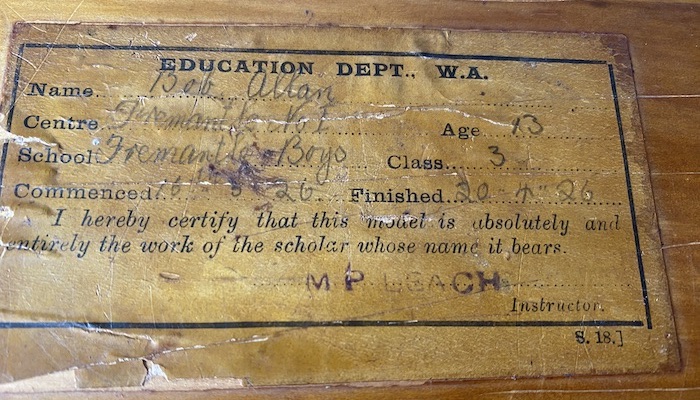 EDUCATION DEPT., W.A.
Name Bob Allan
Centre Fremantle No 1 Age 13
School Fremantle Boys Class 3
Commenced 16 3 26 Finished 30-4-26
I hereby certify that this model is absolutely and
entirely the work of the scholar whose name it bears.
M P LEACH
Instructor.
S. 18.]